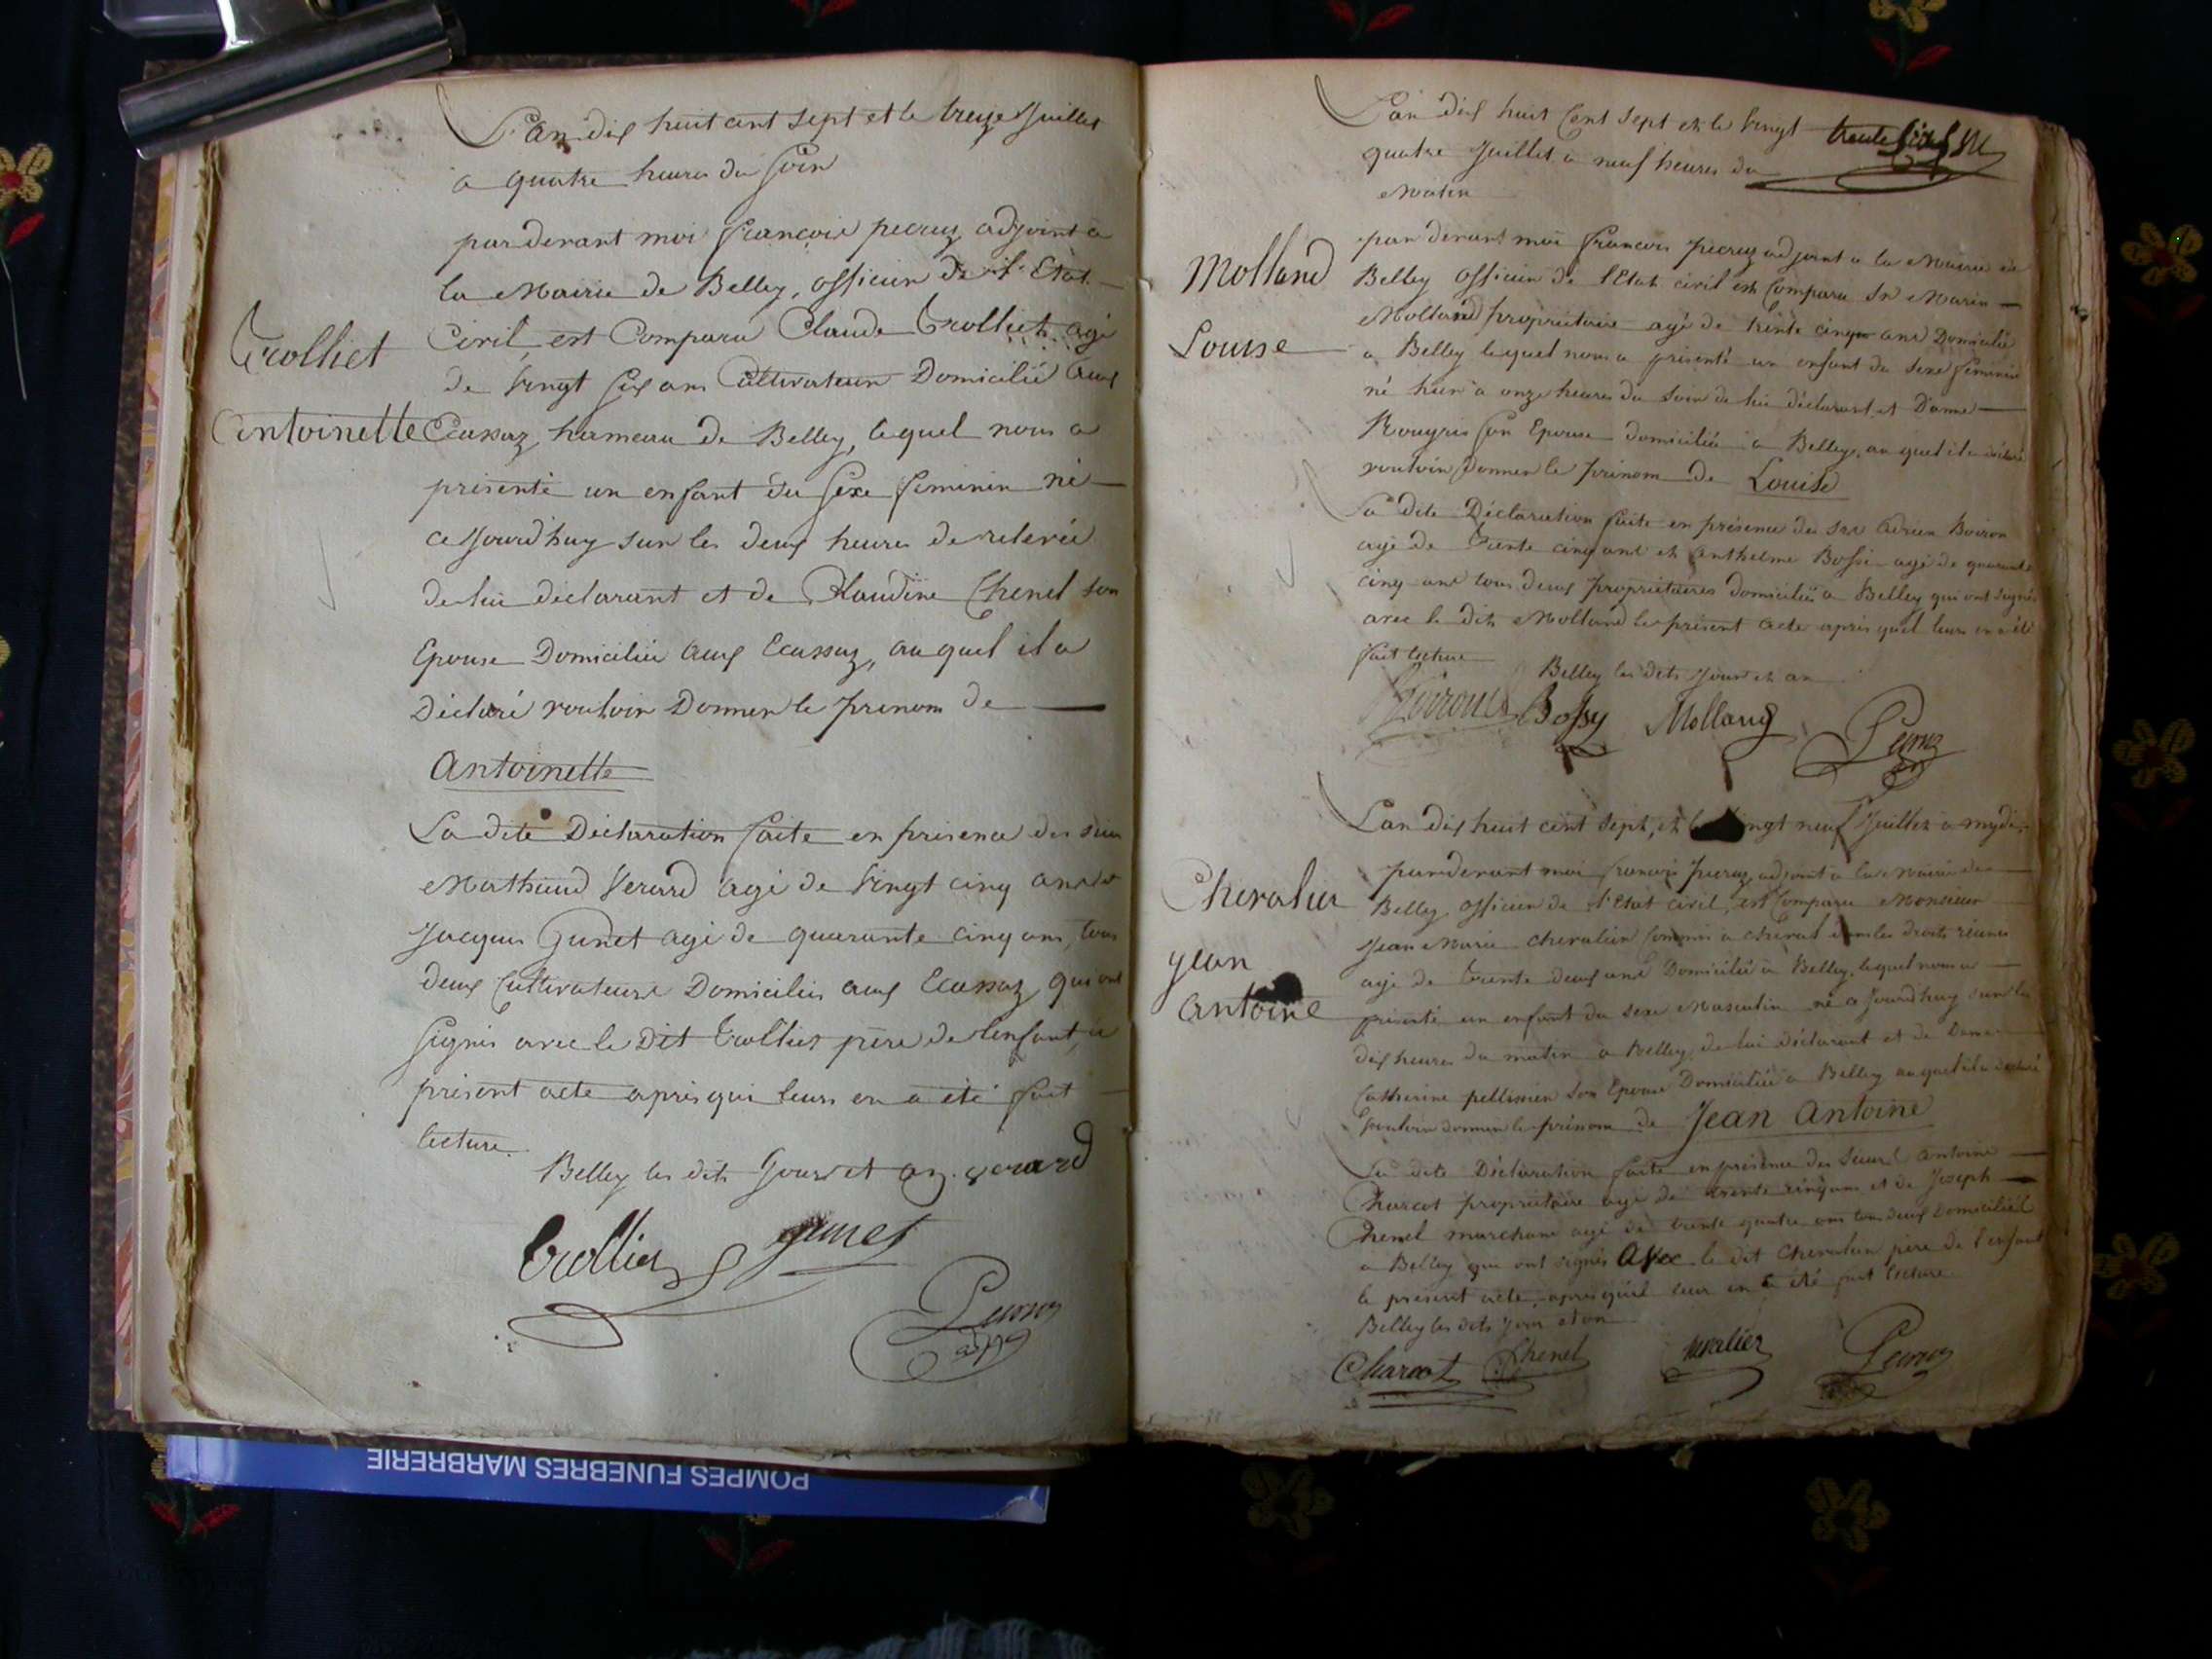 L'an dix huit cent sept et le treize Juillet
a quatre heures du soir
pardevant moi françois pecruz adjoint a
la Mairie de Belley, officier de l'Etat
Civil, est Comparu Claude Trolliet agé
de vingt six ans Cultivateur Domicilié aux
Trolliet
Antoinette
Ecassaz, hameau de Belley, lequel nous a
présenté un enfant du sexe feminin né
ce Jourd'huy sur les deux heures de relevée
de lui déclarant et de Claudine Chenel son
Epouse Domiciliée aux Ecassaz, auquel il a
Déclaré vouloir Donner le prenom de
Antoinette
La dite Déclaration faite en présence des sieurs
Mathieud Verard agé de vingt cinq ans et
Jacques Gunet agé de quarante cinq ans, tous
deux Cultivateurs Domiciliés aux Ecassaz, qui ont
signés avec le Dit Trolliet père de l'enfant, le
présent acte après qui leurs en a été fait
lecture.
Belley les dits Jour et an. verard
Trolliet gunet
Pecruz
adj
L'an dix huit Cent sept et le vingt
quatre Juillet a neuf heures du
Matin
trente six
Molland
Louise
pardevant moi françois pecruz adjoint a la Mairie de
Belley officier de l'Etat civil est Comparu Sr Marin
Molland propriétaire agé de trente cinq ans Domicilié
a Belley lequel nous a présenté un enfant du sexe feminin
né hier a onze heures du soir de lui déclarant, et Dame
Rougris son Epouse domiciliée a Belley, auquel il a déclaré
vouloir Donner le prénom de Louise
La dite Déclaration faite en présence des srs Adrien Boiron
agé de trente cinq ans et Anthelme Bossi agé de quarante
cinq ans tous deux propriétaires domiciliés a Belley qui ont signés
avec le dit Molland le présent acte après quil leurs en a été
fait lecture Belley les dits Jour et an
Boiron Bossy Molland Pecruz
L'an dix huit cent sept, et le vingt neuf Juillet a mydi
Chevalier
Jean
Antoine
pardevant moi françois pecruz, adjoint a la Mairie de
Belley, officier de l'Etat civil, est Comparu Monsieur
Jean Marie chevalier commis a cheval dans les droits réunis
agé de trente deux ans Domicilié a Belley, lequel nous a
présenté un enfant du sexe Masculin né a Jourd'huy sur les
dix heures du matin a Belley, de lui déclarant et de Dame
Catherine pellissier son Epouse Domiciliée a Belley auquel il a declaré
vouloir donner le prénom de Jean Antoine
La dite Déclaration faite en présence des sieurs Antoine
Charcot propriétaire agé de trente cinq ans et de Joseph
Chenel marchand agé de trente quatre ans tous deux Domiciliés
a Belley qui ont signés avec le dit Chevalier père de l'enfant
le présent acte, après quil leur en a été fait lecture
Belley les dits jour et an
Charcot Chenel chevalier Pecruz
POMPES FUNEBRES MARBRERIE